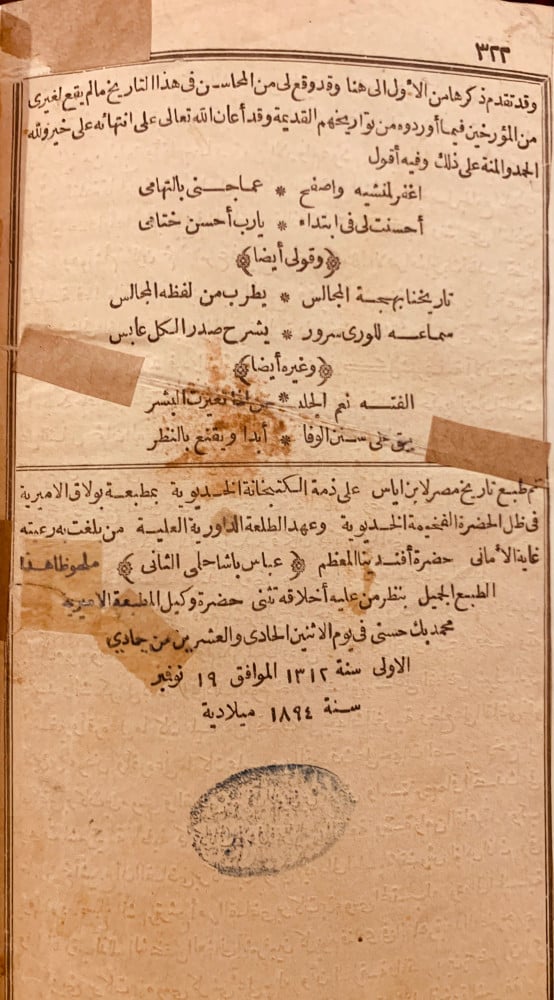 ٣٢٢
وقد تقدم ذكرها من الأول الى هنا وقد وقع لى من المحاسن فى هذا التاريخ ما لم يقع لغيرى
من المؤرخين فيما أوردوه من تواريخهم القديمة وقد أعان الله تعالى على انتهائه على خير ولله
الحمد والمنة على ذلك وفيه أقول
اغفر لمنشيه واصفح * عما جنى بالتهامى
أحسنت لى فى ابتداء * يارب أحسن ختامى
﴿وقولى أيضا﴾
تاريخنا بهجة المجالس * يطرب من لفظه المجالس
سماعه للورى سرور * يشرح صدر الكل عابس
﴿وغيره أيضا﴾
الفته نعم الجلد * تغيرت البشر
على سنن الوفا * أبدا ويقنع بالنظر
تم طبع تاريخ مصر لابن اياس على ذمة الكتبخانة الخديوية بمطبعة بولاق الاميرية
فى ظل الحضرة الفخيمة الخديوية وعهد الطلعة الداورية العلية من بلغت به رعيته
غاية الأمانى حضرة أفندينا المعظم ﴿عباس باشا حلمى الثانى﴾ ملحوظا هذا
الطبع الجميل بنظر من عليه أخلاقه تثنى حضرة وكيل المطبعة الاميرية
محمد بك حسنى فى يوم الاثنين الحادى والعشرين من جمادى
الاولى سنة ١٣١٢ الموافق ١٩ نوفمبر
سنة ١٨٩٤ ميلادية